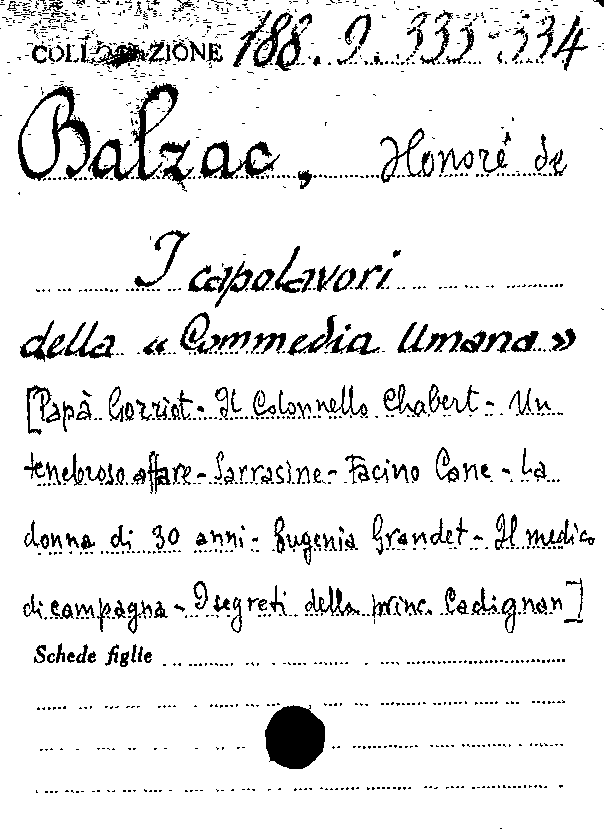 COLLOCAZIONE 188.9.333-334
Balzac, Honoré de
I capolavori
della « Commedia Umana »
[Papà Gorriot - Il Colonnello Chabert - Un
tenebroso affare - Sarrasine - Facino Cane - La
donna di 30 anni - Eugenia Grandet - Il medico
di campagna - I segreti della princ. Cadignan]
Schede figlie